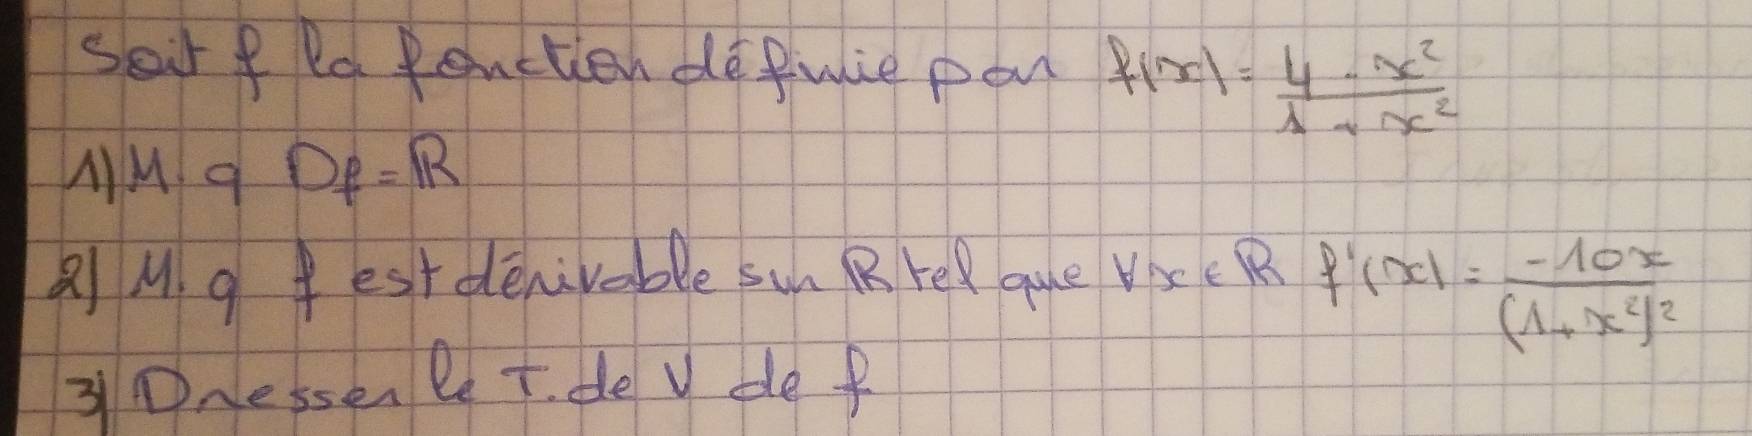 Soit f la fonction définie par f(x) = (4 - x²)/(1 + x²)
1) M. q Df = ℝ
2) M. q f est dérivable sur ℝ tel que ∀x ∈ ℝ f'(x) = (-10x)/((1 + x²)²)
3) Dresser le T. de V de f